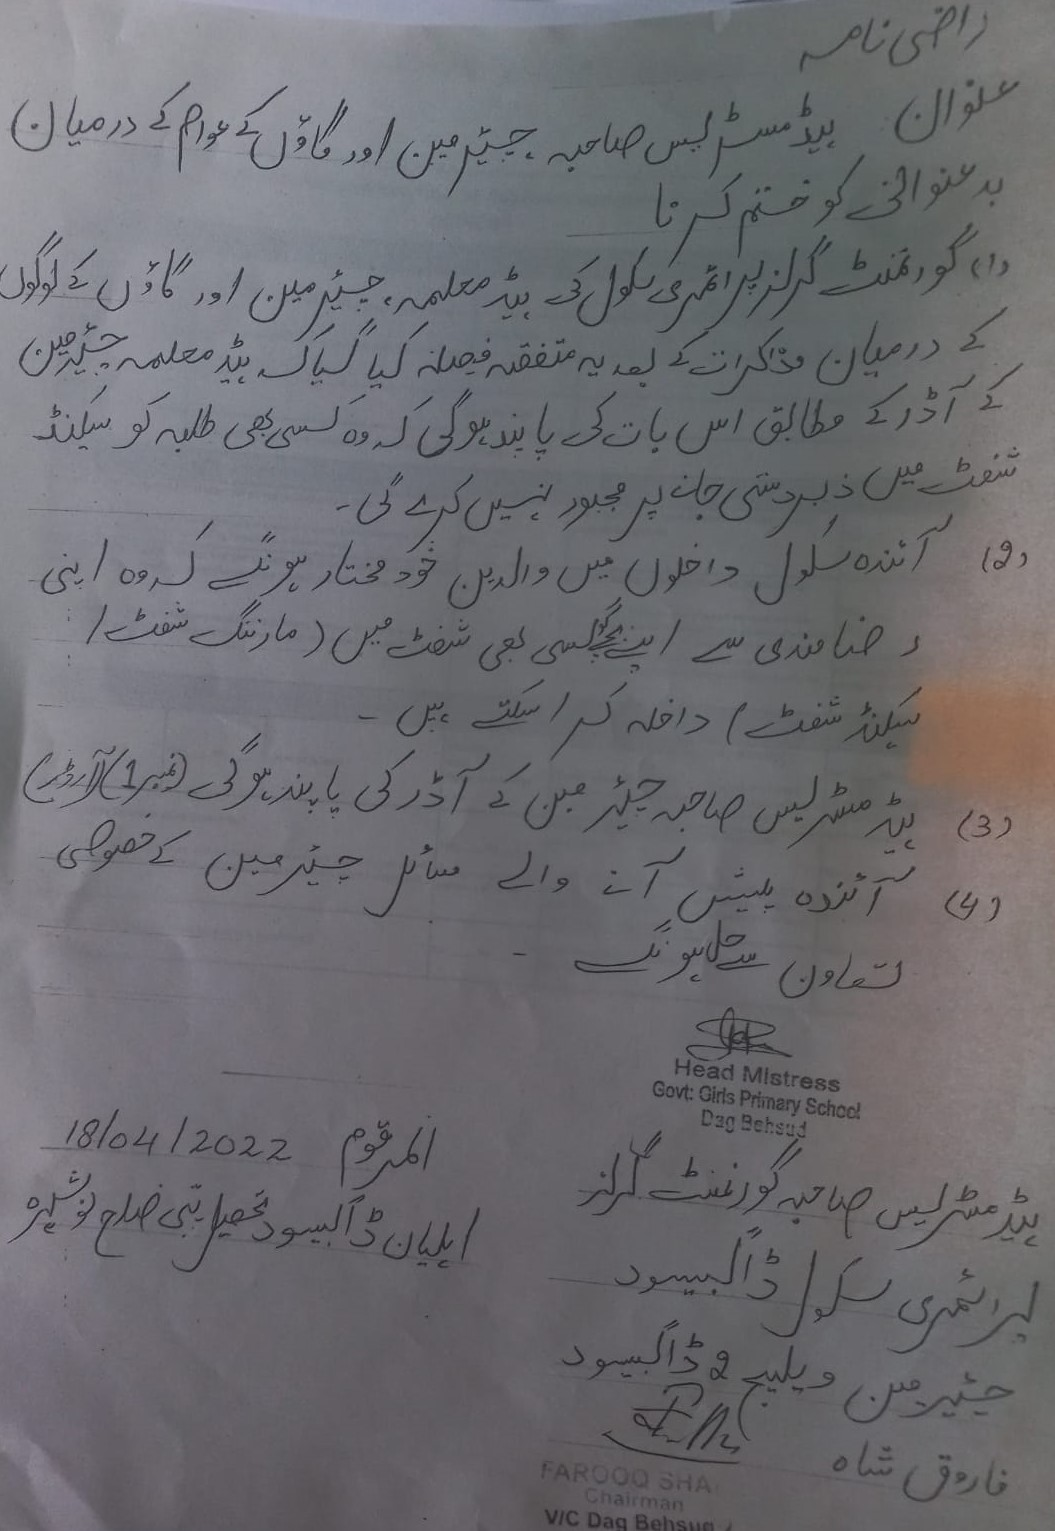 راضی نامہ
عنوان ہیڈ مسٹریس صاحبہ، چیئرمین اور گاؤں کے عوام کے درمیان
بدعنوانی کو ختم کرنا
(1) گورنمنٹ گرلز پرائمری سکول کی ہیڈ معلمہ، چیئرمین اور گاؤں کے لوگوں
کے درمیان مذاکرات کے بعد یہ متفقہ فیصلہ کیا گیا کہ ہیڈ معلمہ چیئرمین
کے آڈر کے مطابق اس بات کی پابند ہوگی کہ وہ کسی بھی طلبہ کو سیکنڈ
شفٹ میں ذبردستی جانے پر مجبور نہیں کرے گی۔
(2) آئندہ سکول داخلوں میں والدین خود مختار ہونگے کہ وہ اپنی
رضامندی سے اپنے بچے کو کسی بھی شفٹ میں (مارننگ شفٹ /
سیکنڈ شفٹ) داخلہ کرا سکتے ہیں۔
(3) ہیڈ مسٹریس صاحبہ چیئرمین کے آڈر کی پابند ہوگی (نمبر 1) (آرڈر)
(4) آئندہ پیش آنے والے مسائل چیئرمین کے خصوصی
تعاون سے حل ہونگے۔
Head Mistress
Govt: Girls Primary School
Dag Behsud
المرقوم 18/04/2022
ہیڈ مسٹریس صاحبہ گورنمنٹ گرلز
اہلیان ڈاگبیسود تحصیل پبی ضلع نوشہرہ
پرائمری سکول ڈاگبیسود
چیئرمین ویلیج 2 ڈاگبیسود
فاروق شاہ
FAROOQ SHA
Chairman
V/C Dag Behsud